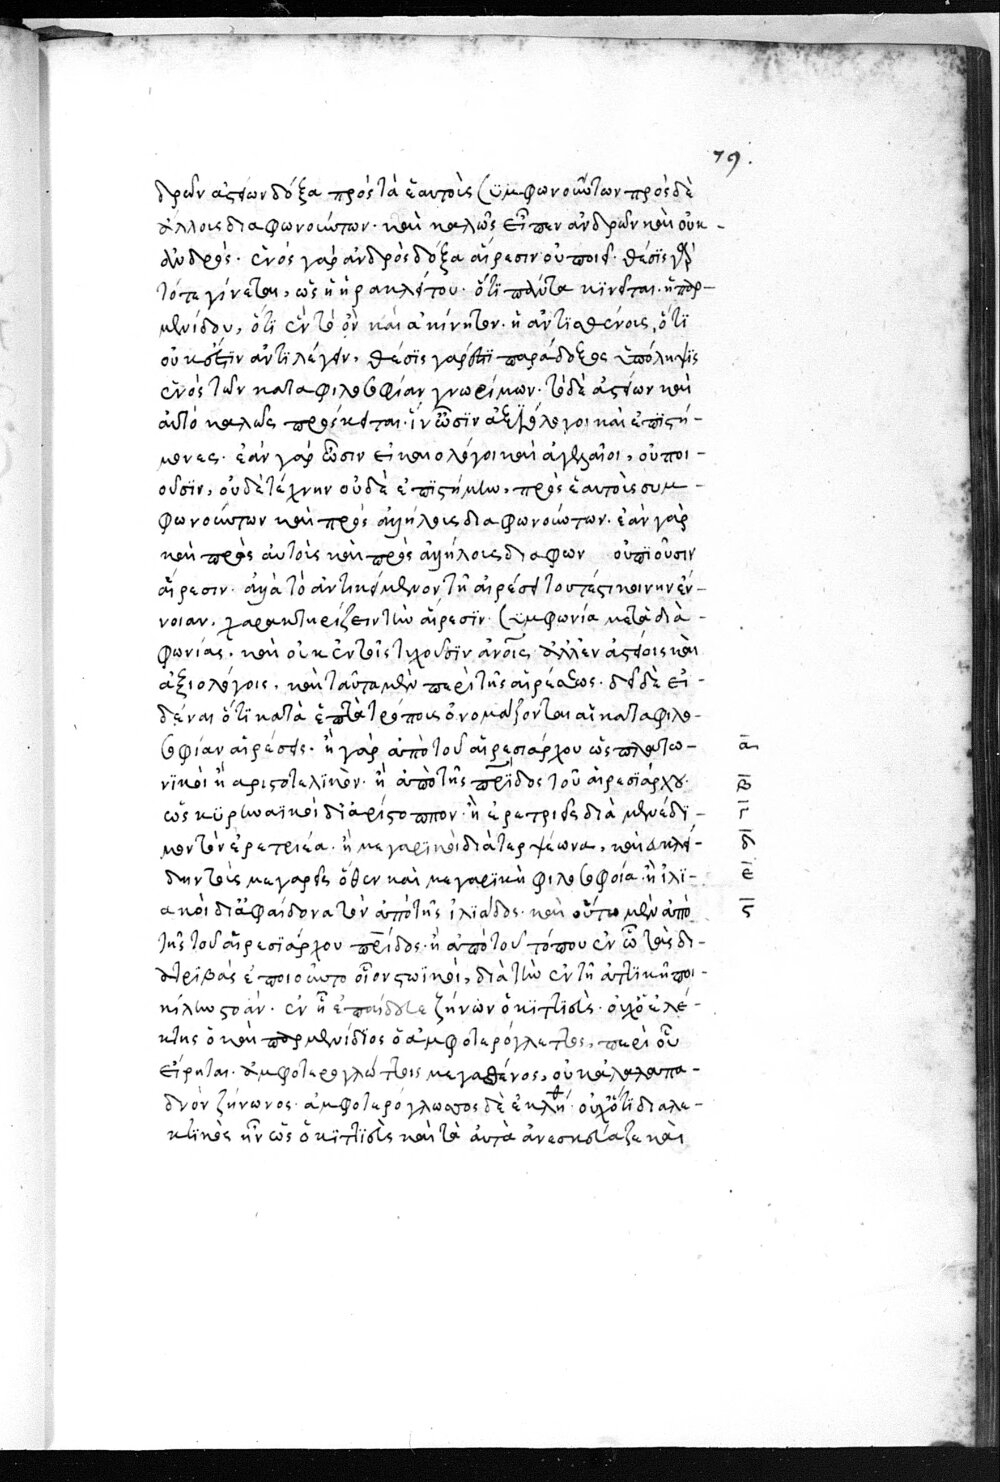 79.
δρῶν ἀστείων δόξα πρὸς τὰ ἑαυτοῖς συμφωνούντων πρὸς δὲ
ἄλλους διαφωνούντων. καὶ καλῶς εἶπεν ἀνδρῶν καὶ οὐκ -
ἀνδρός. ἑνὸς γὰρ ἀνδρὸς δόξα αἵρεσιν οὐ ποιεῖ. θέσις γὰρ
τότε γίνεται, ὡς ἡ ἡρακλείτου. ὅτι πάντα κινεῖται. ἡ παρ -
μενίδου, ὅτι ἓν τὸ ὂν καὶ ἀκίνητον. ἡ ἀντισθένοις, ὅτι
οὐκ ἔστιν ἀντιλέγειν, θέσις γάρ ἐστι παράδοξος ὑπόληψις
ἑνὸς τῶν κατὰ φιλοσοφίαν γνωρίμων. τὸ δὲ ἀστείων καὶ
αὐτὸ καλῶς πρόσκειται. ἵν' ὦσιν ἀξιόλογοι καὶ ἐπιστή -
μονες. ἐὰν γὰρ ὦσιν εἰκαιολόγοι καὶ ἀγελαῖοι, οὐ ποι -
οῦσιν, οὐδὲ τέχνην οὐδὲ ἐπιστήμην, πρὸς ἑαυτοὺς συμ -
φωνούντων καὶ πρὸς ἀλλήλους διαφωνούντων. ἐὰν γὰρ
καὶ πρὸς αὐτοὺς καὶ πρὸς ἀλλήλους διαφων οὐ ποιοῦσιν
αἵρεσιν. ἀλλὰ τὸ ἀντικείμενον τῇ αἱρέσει τουτέστι κοινὴν ἔν -
νοιαν, χαρακτηρίζει τὴν αἵρεσιν. συμφωνία μετὰ δια -
φωνίας. καὶ οὐκ ἐν τοῖς τυχοῦσιν ἀνοις ἀλλ' ἐν ἀστείοις καὶ
ἀξιολόγοις. καὶ ταῦτα μὲν περὶ τῆς αἱρέσεως. δεῖ δὲ εἰ -
δέναι ὅτι κατὰ ἑπτὰ τρόπους ὀνομάζονται αἱ κατὰ φιλο -
σοφίαν αἱρέσεις. ἢ γὰρ ἀπὸ τοῦ αἱρεσιάρχου ὡς πλατω - α
νικοὶ ἢ ἀριστοτελικόν. ἢ ἀπὸ τῆς πρίδος τοῦ αἱρεσιάρχου. β
ὡς κυρηναϊκοὶ δι' ἀρίστιππον. ἢ ἐρετριεῖς διὰ μενέδη - γ
μον τὸν ἐρετριέα. ἢ μεγαρικοὶ διὰ τερψέωνα, καὶ εὐκλεί - δ
δην τοὺς μεγαρεῖς ὅθεν καὶ μεγαρικὴ φιλοσοφία. ἢ ἠλι - ε
ακοὶ διὰ φαίδονα τὸν ἀπὸ τῆς ἠλιάδος. καὶ οὕτω μὲν ἀπὸ ϛ
τῆς τοῦ αἱρεσιάρχου πρίδος. ἢ ἀπὸ τοῦ τόπου ἐν ᾧ τὰς δι -
ατριβὰς ἐποιοῦντο οἷον στωικοί, διὰ τὴν ἐν τῇ ἀττικῇ ποι -
κίλην στοάν. ἐν ᾗ ἐπαίδευε ζήνων ὁ κιττιεὺς. οὐχ ὁ ἐλε -
άτης ὁ καὶ παρμενίδιος ὁ ἀμφοτερόγλωττος, περὶ οὗ
εἴρηται. ἀμφοτερογλώττοις μέγα σθένος, οὐκ ἀλαπα -
δνὸν ζήνωνος. ἀμφοτερόγλωσσος δὲ ἐκλήθη. οὐχ ὅτι διαλε -
κτικὸς ἦν ὡς ὁ κιττιεὺς καὶ τὰ αὐτὰ ἀνεσκεύαζε καὶ